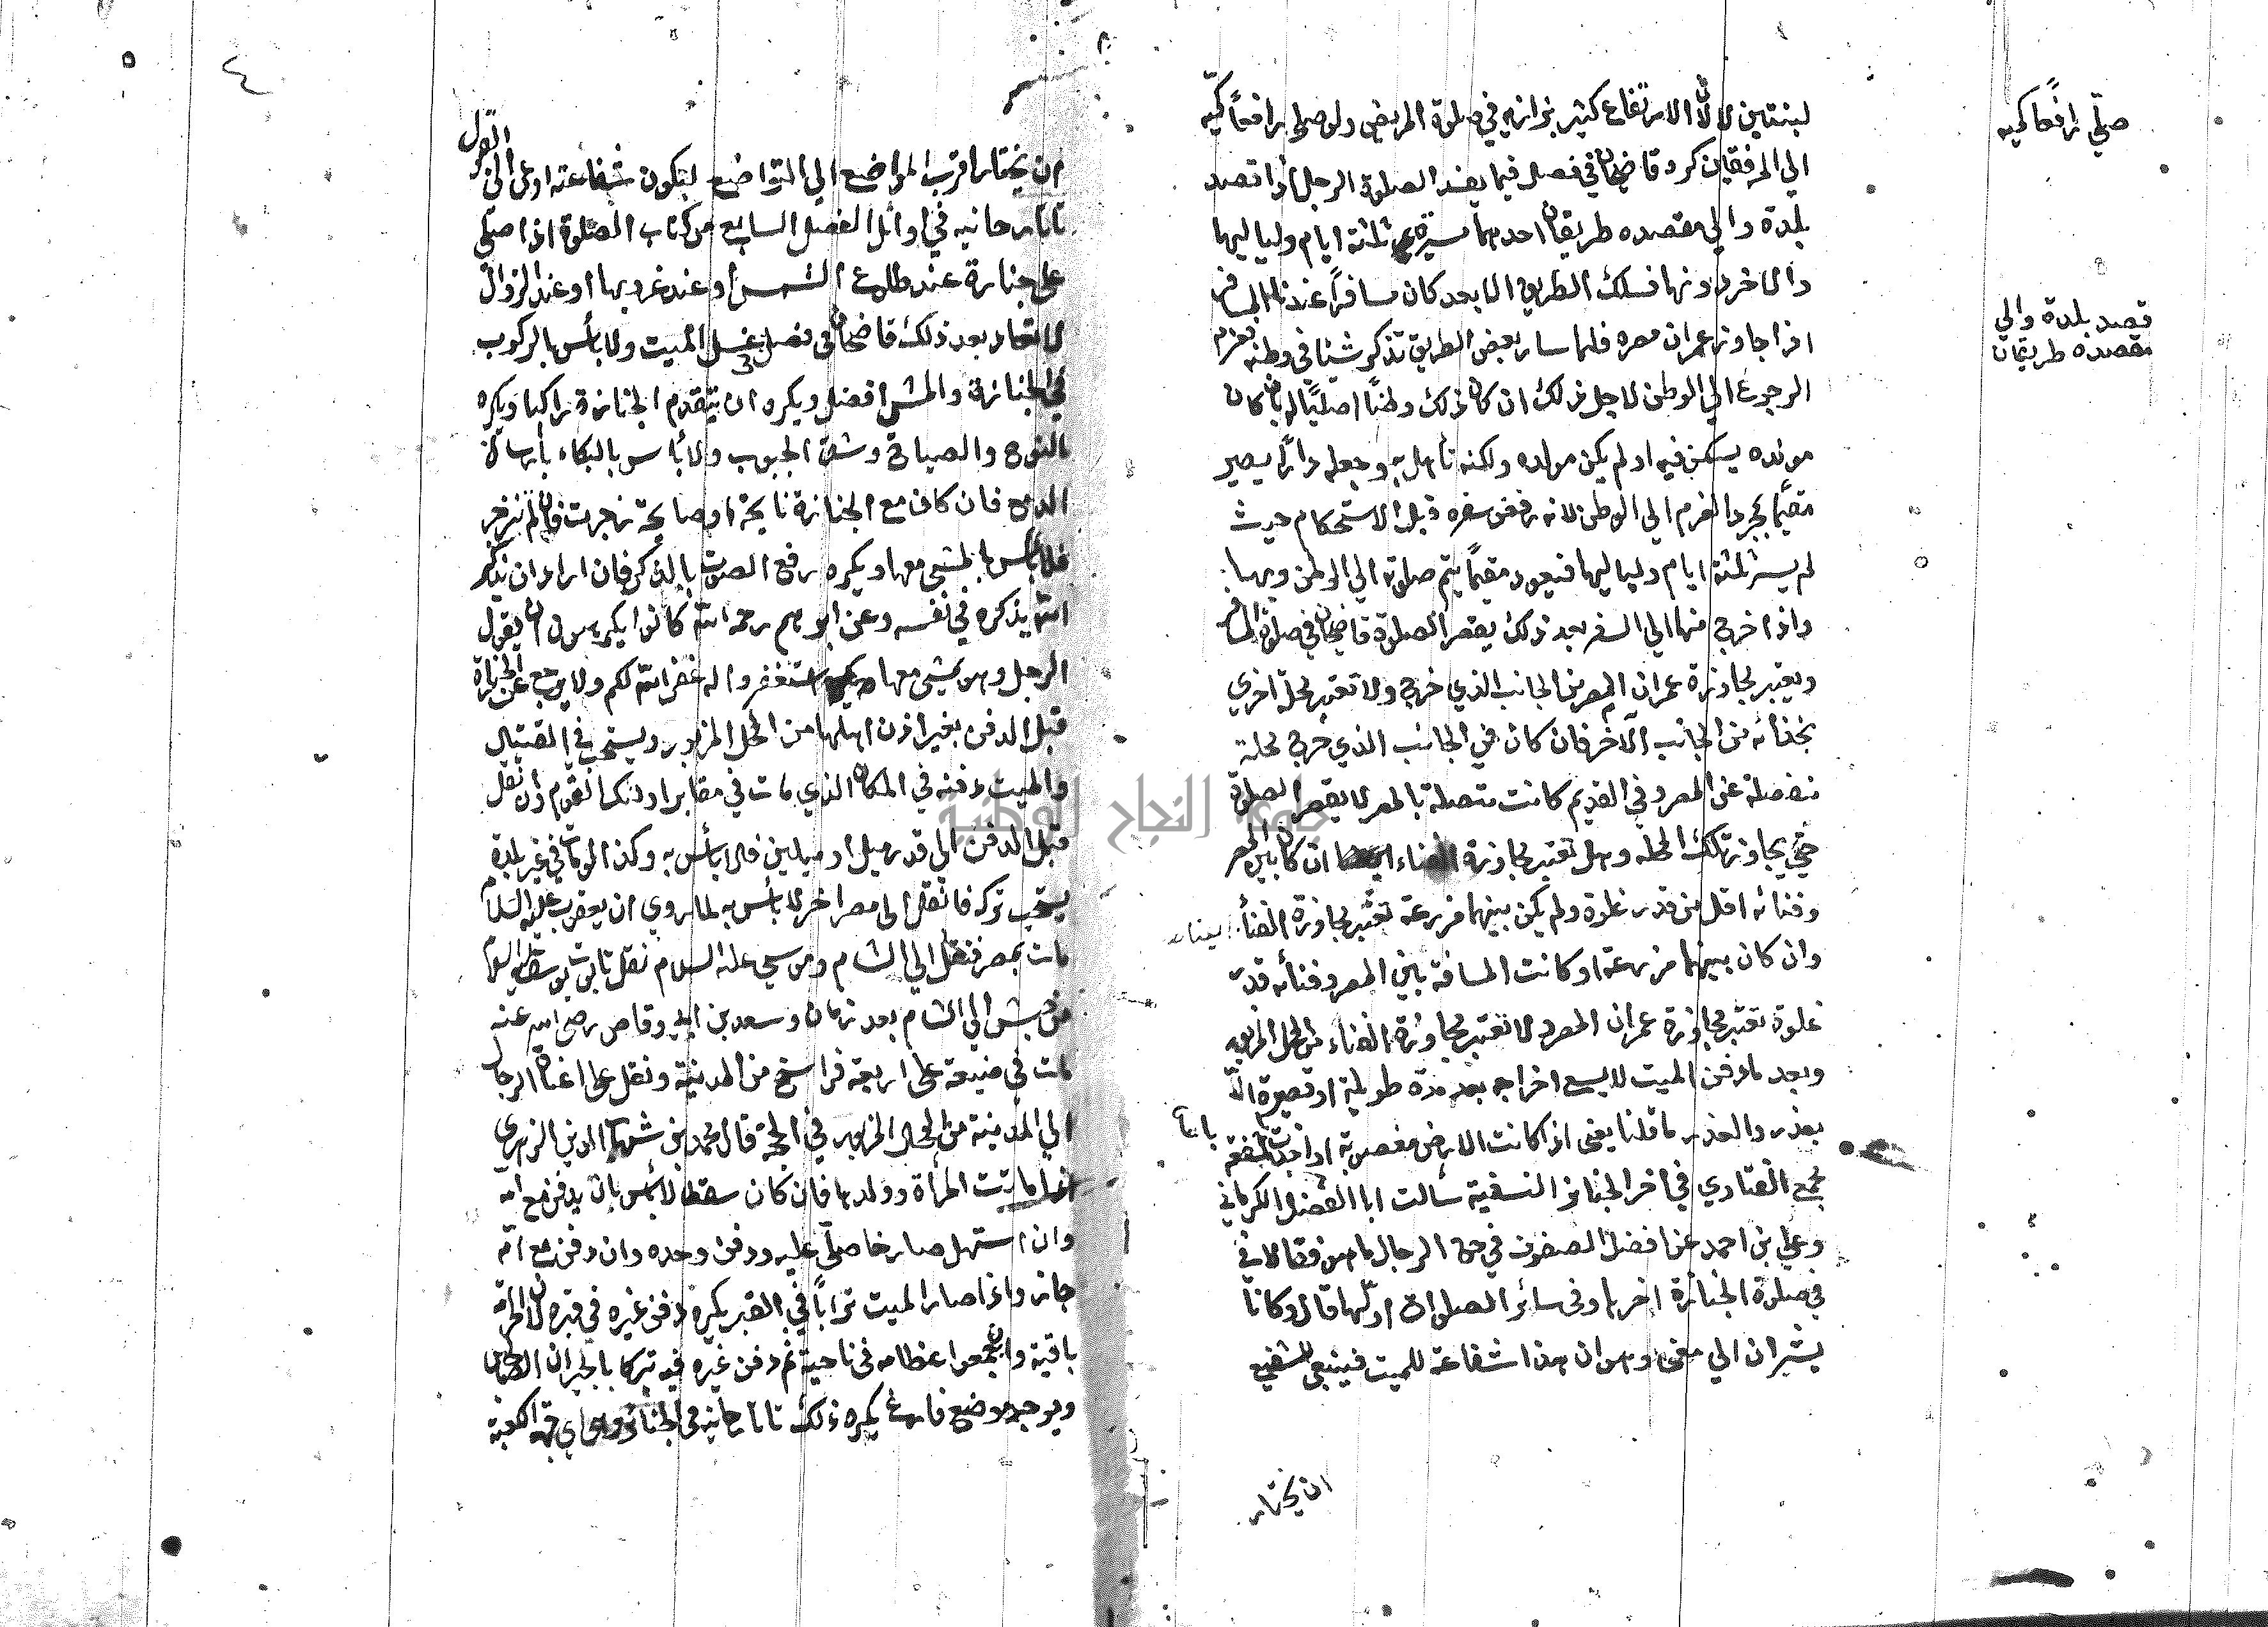 لبنتين لا لأن الارتفاع كثير بزازيه في صلوة المريض ولو صلى رافعا كميه
الى المرفقين كره قاضيخان في فصل فيما يفسد الصلوة الرجل اذا قصد
بلدة والى مقصده طريقان احدهما مسيرة ثلثة ايام ولياليها
والاخر دونها فسلك الطريق الابعد كان مسافرًا عندنا المسافر
اذا جاوز عمران مصره فلما سار بعض الطريق تذكر شيئا في وطنه فعزم
الرجوع الى الوطن لاجل ذلك ان كان ذلك وطنًا اصليًا له بان كان
مولده يسكن فيه او لم يكن مولده ولكنه تأهل به وجعله دارًا يصير
مقيمًا بمجرد العزم الى الوطن لانه رفض سفره قبل الاستحكام حيث
لم يسر ثلثة ايام ولياليها فيعود مقيمًا يتم صلوته الى الوطن وبها
واذا خرج منها الى السفر بعد ذلك يقصر الصلوة قاضيخان في صلوة المسافر
ويعتبر مجاوزة عمران المصر من الجانب الذي خرج ولا تعتبر محلة اخرى
بحذائه من الجانب الآخر فان كان في الجانب الذي خرج محلة
منفصلة عن المصر وفي القديم كانت متصلة بالمصر لا يقصر الصلوة
حتى يجاوز تلك المحلة وهل تعتبر مجاوزة الفناء ان كان بين المصر
وفنائه اقل من قدر غلوة ولم يكن بينهما مزرعة تعتبر مجاوزة الفناء ايضا
وان كان بينهما مزرعة او كانت المسافة بين المصر وفنائه قدر
غلوة تعتبر مجاوزة عمران المصر ولا تعتبر مجاوزة الفناء من المحل المزبور
وبعد ما دفن الميت لا يسع اخراجه بعد مدة طويلة او قصيرة الا
بعذر والعذر ما قلنا يعني اذا كانت الارض مغصوبة او اخذت بالشفعة
مجمع الفتاوي في اخر الجنائز النسفية سألت ابا الفضل الكرماني
وعلي بن احمد عن افضل الصفوف في حق الرجال ما هو فقالا
في صلوة الجنازة اخرها وفي سائر الصلوات اولها قال وكانا
يشيران الى معنى وهو ان هذا شفاعة للميت فينبغي للشفيع
ان يختار
صلّى رافعًا كميه
قصد بلدة والى
مقصده طريقان
٤
ان يختار اقرب المواضع الى التواضع لتكون شفاعته ادعى الى القبول
تاتارخانيه في اوائل الفصل السابع من كتاب الصلوة اذا صلى
على جنازة عند طلوع الشمس او عند غروبها او عند الزوال
لا تعاد بعد ذلك قاضيخان في فصل غسل الميت ولا بأس بالركوب
في الجنازة والمشي افضل ويكره ان يتقدم الجنازة راكبا ويكره
النوح والصياح وشق الجيوب ولا بأس بالبكاء بارسال
الدمع فان كان مع الجنازة نايحة او صايحة زجرت فان لم تنزجر
فلا بأس بالمشي معها ويكره رفع الصوت بالذكر فان اراد ان يذكر
الله يذكره في نفسه وعن ابراهيم رحمه الله كانوا يكرهون ان يقول
الرجل وهو يمشي معها استغفروا له غفر الله لكم ولا يرجع عن الجنازة
قبل الدفن بغير اذن اهلها من المحل المزبور ويستحب في القتيل
والميت دفنه في المكان الذي مات في مقابر اولئك القوم وان نقل
قبل الدفن الى قدر ميل او ميلين فلا بأس به وكذا لو مات في غير بلدة
يستحب تركه فان نقل الى مصر اخر لا بأس به لما روي ان يعقوب عليه السلام
مات بمصر فنقل الى الشام وموسى عليه السلام نقل تابوت يوسف عليه السلام
الى الشام بعد زمان وسعد بن ابي وقاص رضي الله عنه
مات في ضيعة على اربعة فراسخ من المدينة ونقل على اعناق الرجال
الى المدينة من المحل المزبور في الحجة قال محمد بن شهاب الدين الزهري
اذا ماتت المرأة وولدها فان كان سقطا لا بأس بان يدفن مع امه
وان استهل صارخا صلّى عليه ودفن وحده وان دفن مع امه
جاز واذا صار الميت ترابًا في القبر يكره دفن غيره في قبره لان الحرمة
باقية وان جمعوا عظامه في ناحية ثم دفن غيره فيه تبركا بالجيران الصالحين
ويوجد موضع فارغ يكره ذلك تاتارخانيه في الجنائز
جامعة النجاح الوطنية